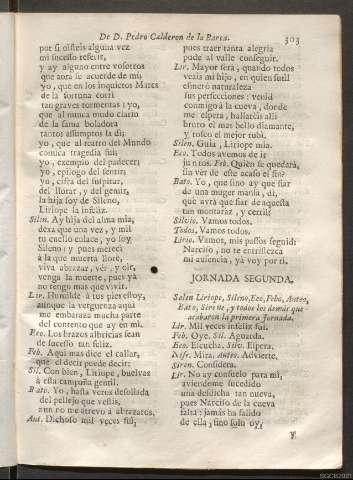 De D. Pedro Calderon de la Barca. 303
por si oisteis alguna vez
mi sucesso referir,
y ay alguno entre vosotros
que aora se acuerde de mi;
yo, que en los inquietos Mares
de la fortuna corrí
tan graves tormentas: yo,
que al nunca mudo clarin
de la fama boladora
tantos assumptos la dí;
yo, que al teatro del Mundo
comica tragedia fuí;
yo, exemplo del padecer;
yo, epilogo del sentir;
yo, cifra del suspirar,
del llorar, y del gemir,
la hija soy de Sileno,
Liriope la infeliz.
Silen. Ay hija del alma mia,
dexa que una vez, y mil
tu cuello enlace, yo soy
Sileno: y pues merecí
à la que muerta lloré,
viva abrazar, vér, y oìr,
venga la muerte, pues yà
no tengo mas que vivir.
Lir. Humilde à tus pies estoy,
aunque la verguenza aqui
me embaraza mucha parte
del contento que ay en mi.
Eco. Los brazos albricias sean
de sucesso tan feliz.
Feb. Aqui mas dice el callar,
que el decir puede decir:
Sil. Con bien, Liriope, buelvas
à esta campaña gentil.
Bato. Yo, hasta veros desollada
del pellejo que vestís,
aun no me atrevo à abrazaros.
Ant. Dichoso mil veces fuí,
pues traer tanta alegria
pude al valle conseguir.
Lir. Mayor serà, quando todos
veais mi hijo, en quien sutil
esmerò naturaleza
sus perfecciones: venid
conmigo à la cueva, donde
me espera, hallareis alli
bruto el mas bello diamante,
y tosco el mejor rubí.
Silen. Guia, Liriope mia.
Eco. Todos avemos de ir
juntos. Feb. Quièn se quedarà,
sin ver de este acaso el fin?
Bato. Yo, que sino ay que fiar
de una muger mansa, di,
què avrà que fiar de aquesta
tan montaràz, y cerril?
Silvio. Vamos todos.
Todos. Vamos todos.
Lirio. Vamos, mis passos seguid:
Narciso, no te entristezca
mi ausencia, yà voy por tì.
JORNADA SEGUNDA.
Salen Liriope, Sileno, Eco, Febo, Anteo,
Bato, Sirene, y todos los demàs que
acabaron la primera Jornada.
Lir. Mil veces infeliz fuí.
Feb. Oye. Sil. Aguarda.
Eco. Escucha. Sirv. Espera.
Nise. Mira. Anteo. Advierte.
Siren. Considera.
Lir. No ay consuelo para mí,
aviendome sucedido
una desdicha tan nueva,
pues Narciso de la cueva
falta: jamás ha salido
de ella, sino solo oy;
Y